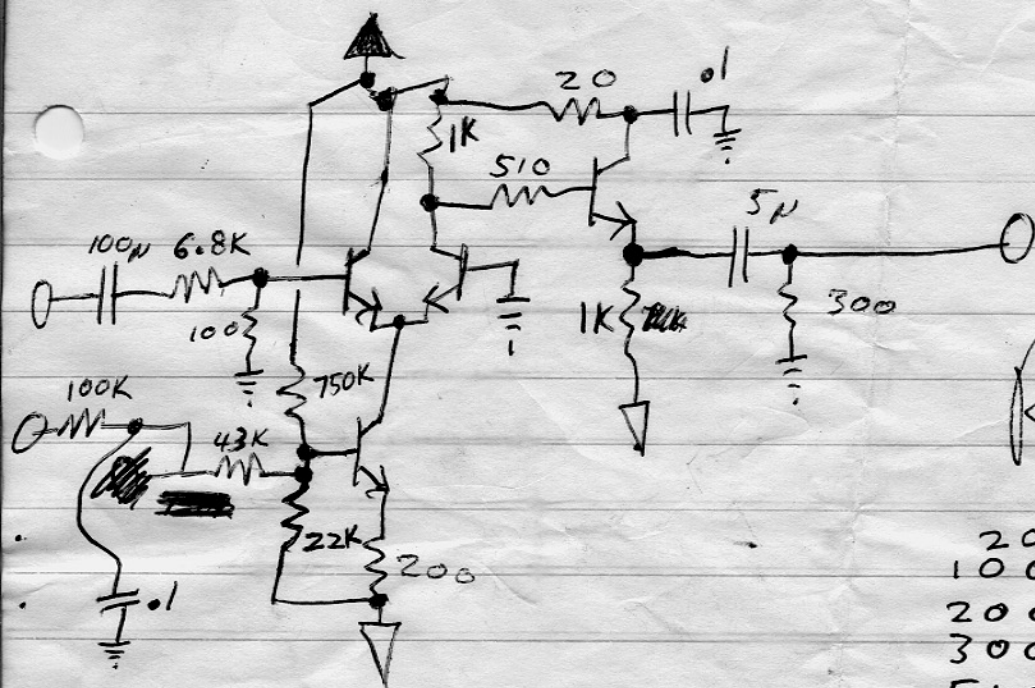 20
.1
1K
510
5μ
100μ
6.8K
100
1K
300
750K
100K
43K
22K
200
.1
20
100
200
300